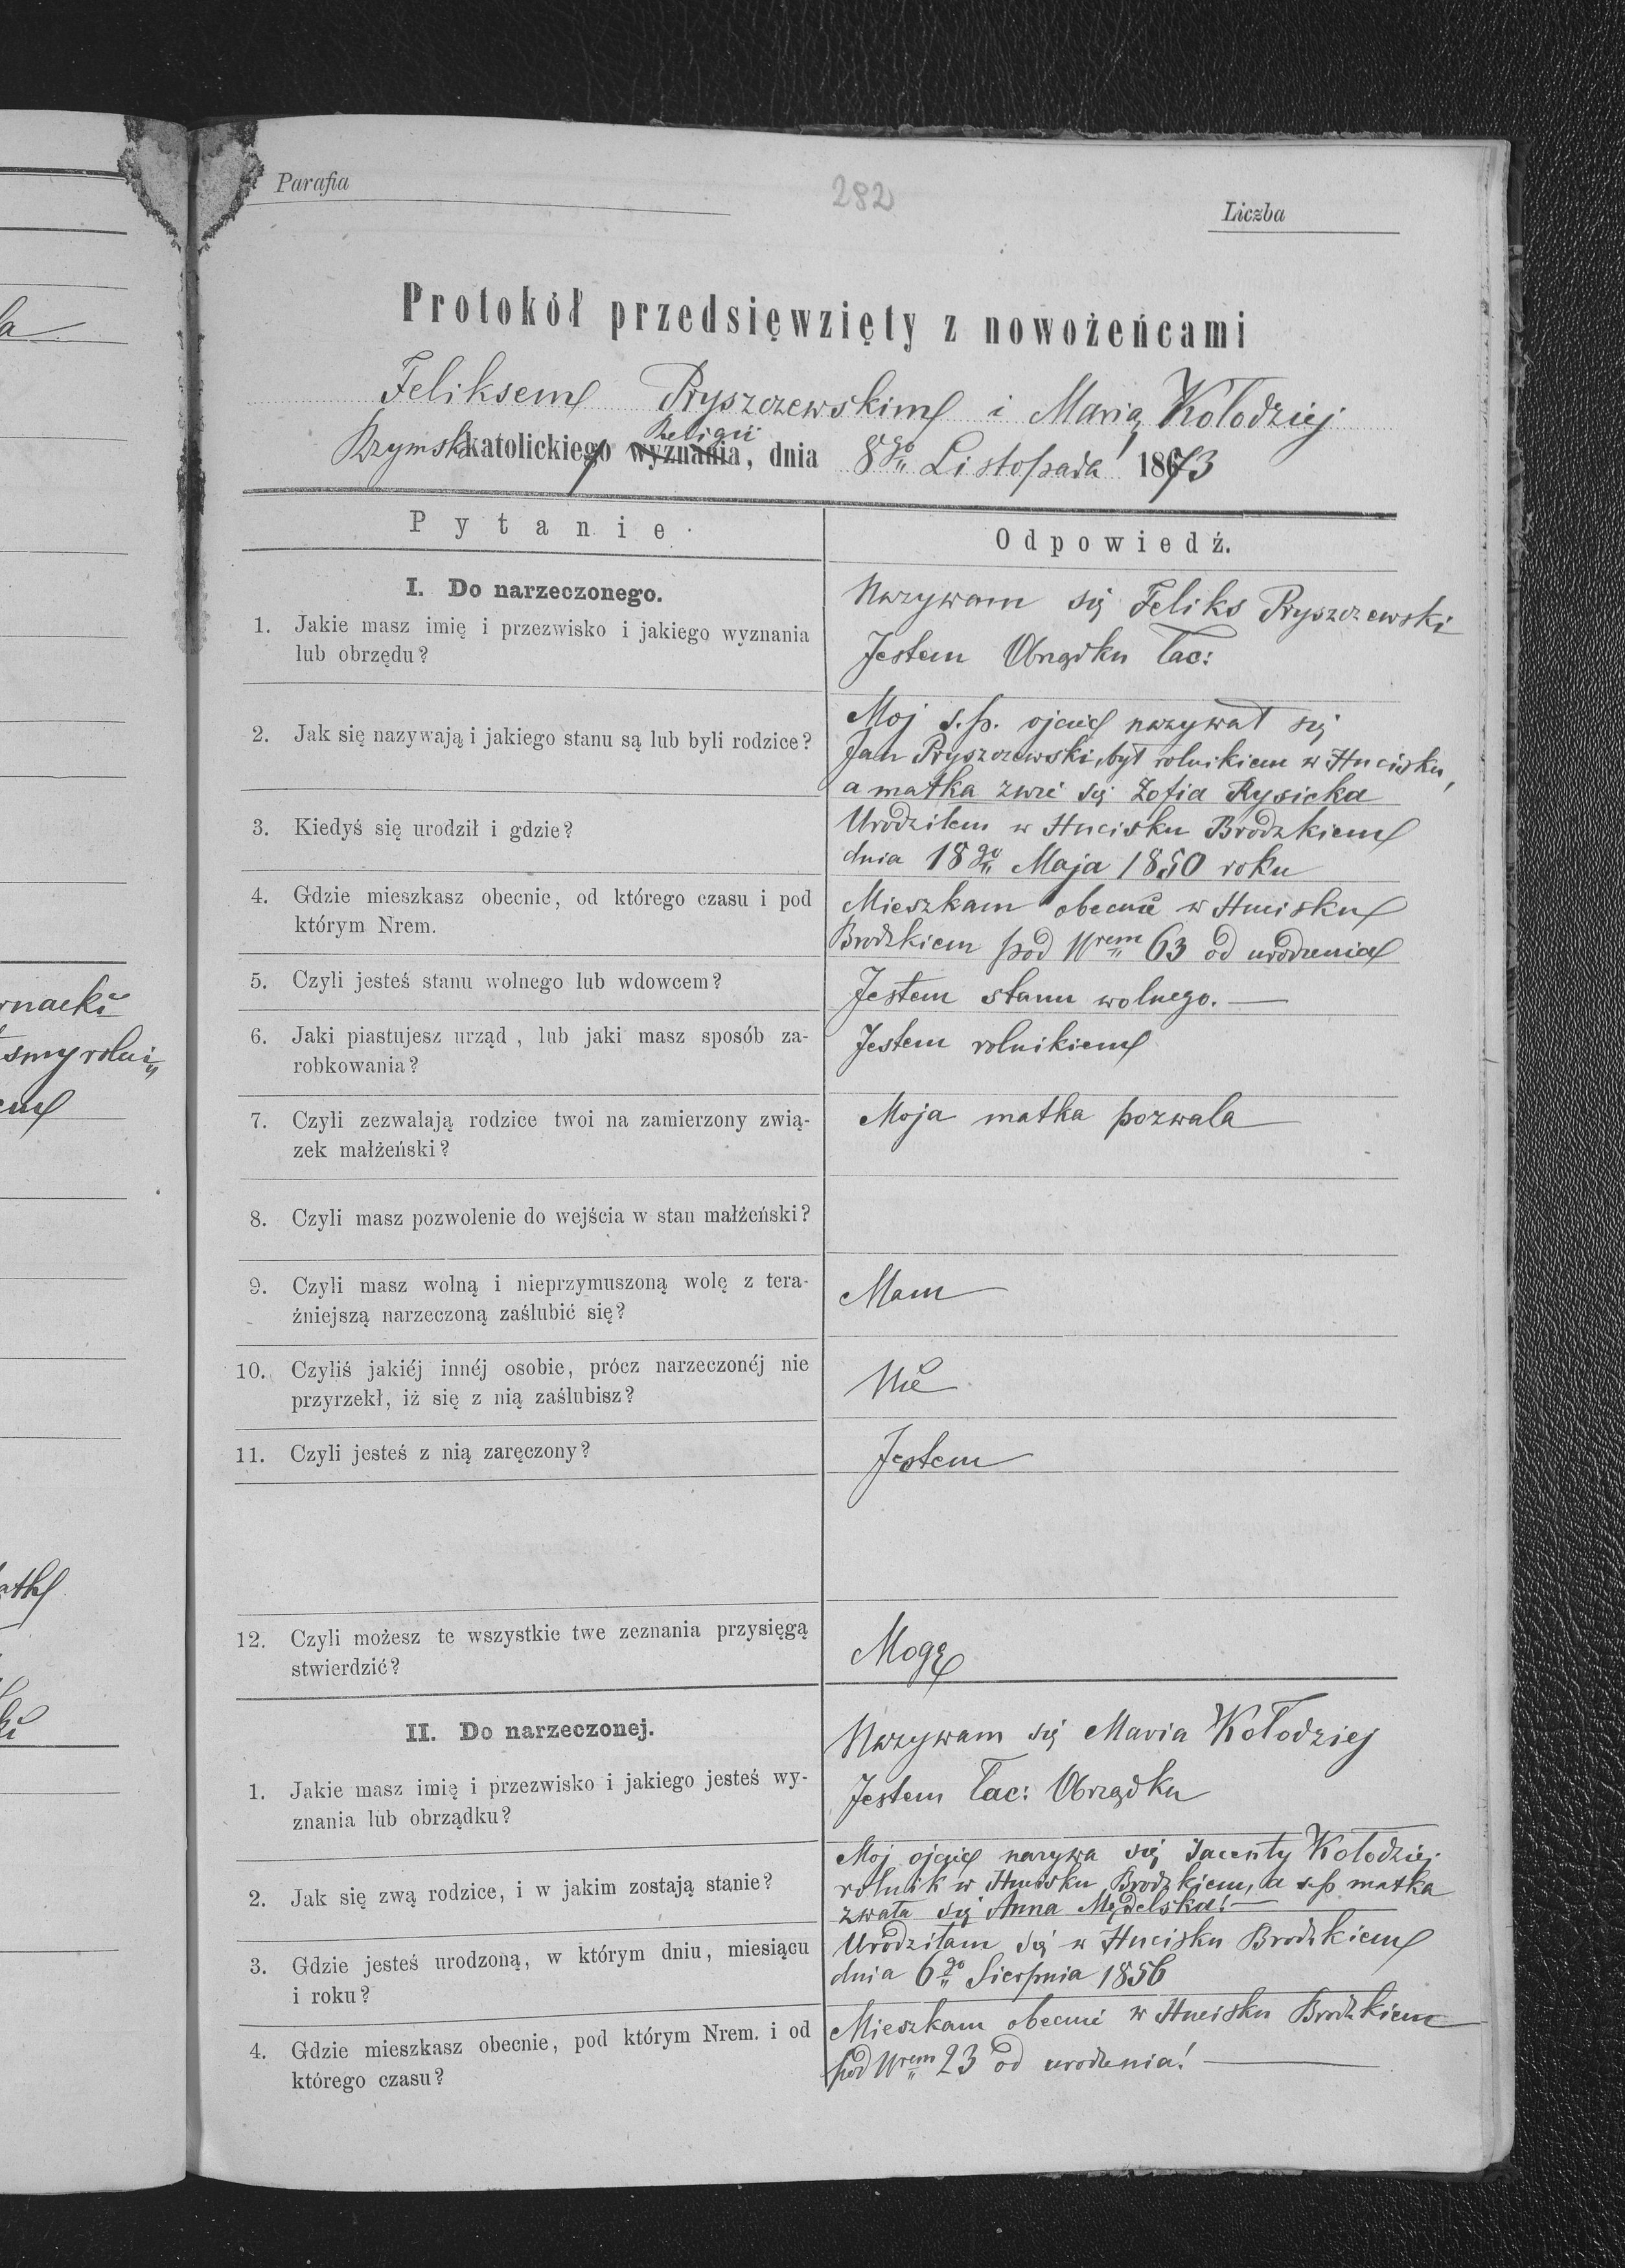 Parafia
282
Liczba
Protokół przedsięwzięty z nowożeńcami
Feliksem Pryszczewskim i Marią Kołodziej
Religii
Rzymsko katolickiego wyznania, dnia 8go Listopada 1873
Pytanie.
Odpowiedź.
I. Do narzeczonego.
1. Jakie masz imię i przezwisko i jakiego wyznania
lub obrzędu?
Nazywam się Feliks Pryszczewski
Jestem Obrządku łac:
2. Jak się nazywają i jakiego stanu są lub byli rodzice?
Moj s.p. ojciec nazywał się
Jan Pryszczewski, był rolnikiem w Hucisku,
a matka zwie się Zofia Rysicka
3. Kiedyś się urodził i gdzie?
Urodziłem w Hucisku Brodzkiem
dnia 18go Maja 1850 roku
4. Gdzie mieszkasz obecnie, od którego czasu i pod
którym Nrem.
Mieszkam obecnie w Hucisku
Brodzkiem pod Nrem 63 od urodzenia
5. Czyli jesteś stanu wolnego lub wdowcem?
Jestem stanu wolnego.
6. Jaki piastujesz urząd, lub jaki masz sposób za-
robkowania?
Jestem rolnikiem
7. Czyli zezwalają rodzice twoi na zamierzony zwią-
zek małżeński?
Moja matka pozwala
8. Czyli masz pozwolenie do wejścia w stan małżeński?
9. Czyli masz wolną i nieprzymuszoną wolę z tera-
źniejszą narzeczoną zaślubić się?
Mam
10. Czyliś jakiéj innéj osobie, prócz narzeczonéj nie
przyrzekł, iż się z nią zaślubisz?
Nie
11. Czyli jesteś z nią zaręczony?
Jestem
12. Czyli możesz te wszystkie twe zeznania przysięgą
stwierdzić?
Mogę
II. Do narzeczonej.
1. Jakie masz imię i przezwisko i jakiego jesteś wy-
znania lub obrządku?
Nazywam się Maria Kołodziej
Jestem łac: Obrządku
2. Jak się zwą rodzice, i w jakim zostają stanie?
Moj ojciec nazywa się Jacenty Kołodziej
rolnik w Hucisku Brodzkiem, a s.p matka
zwała się Anna Mędelska!
3. Gdzie jesteś urodzoną, w którym dniu, miesiącu
i roku?
Urodziłam się w Hucisku Brodzkiem
dnia 6go Sierpnia 1856
4. Gdzie mieszkasz obecnie, pod którym Nrem. i od
którego czasu?
Mieszkam obecnie w Hucisku Brodzkiem
pod Nrem 23 od urodzenia!